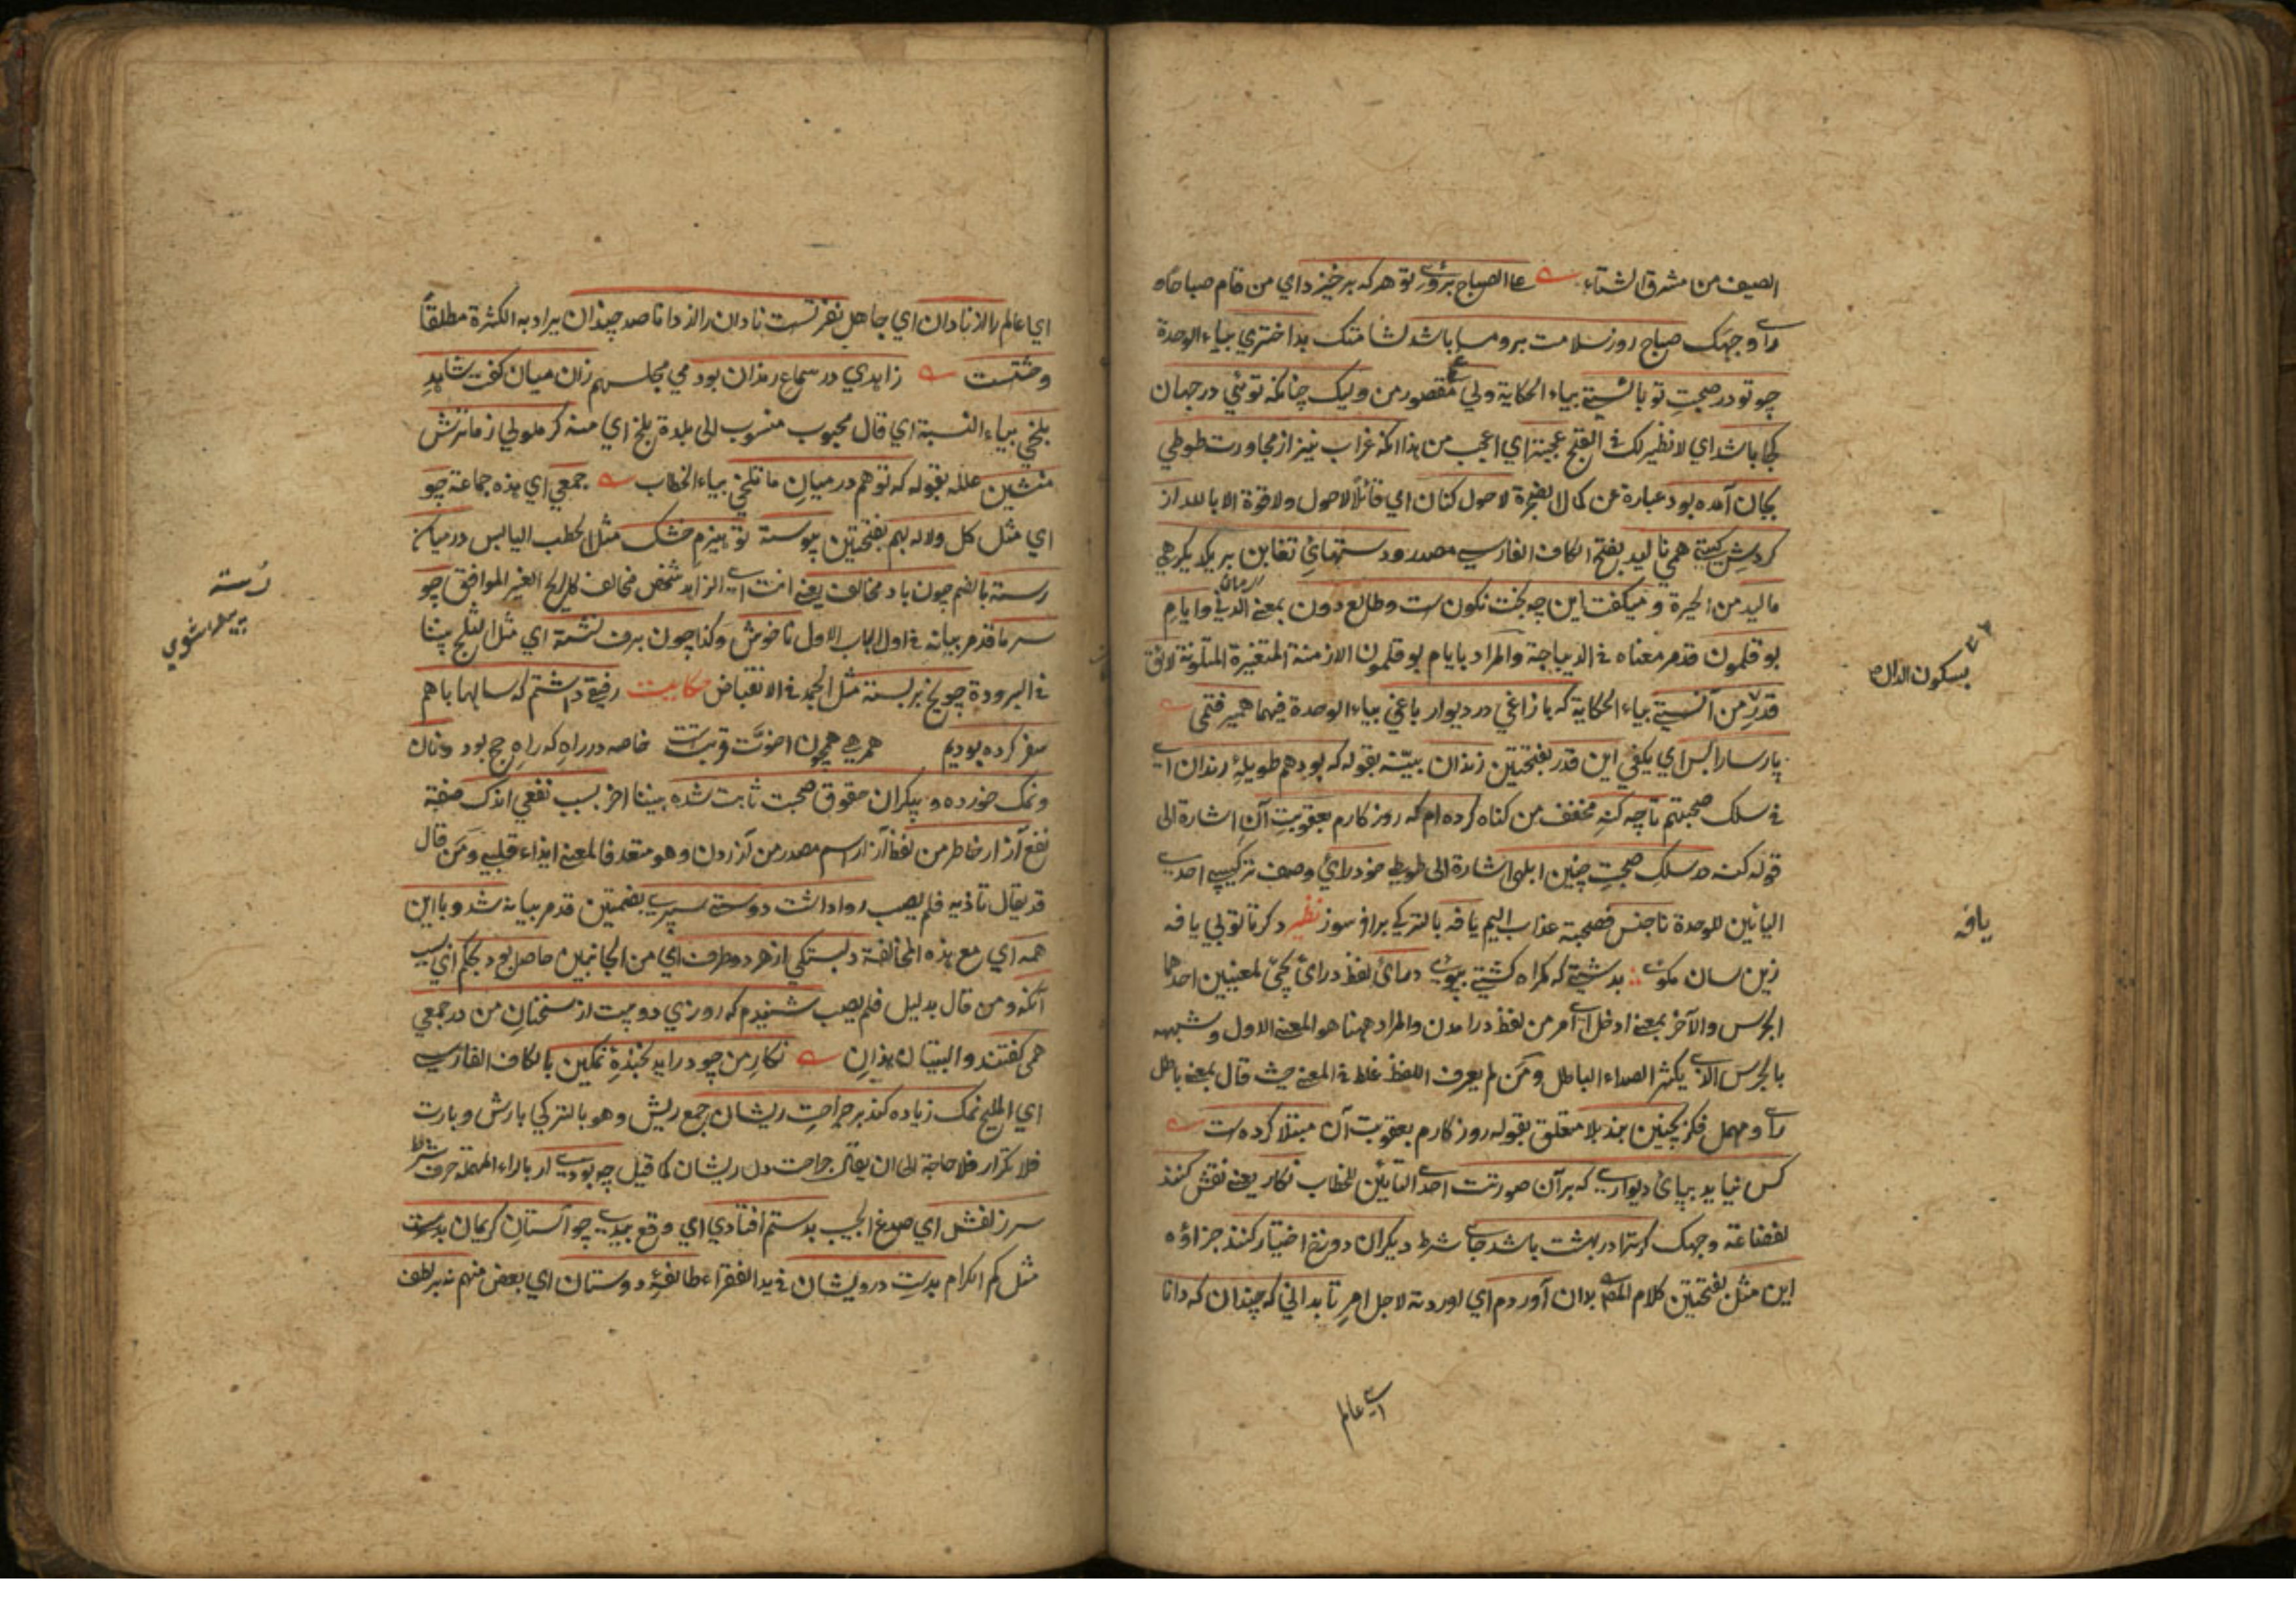 الصيف من مشرق الشتاء علی الصباح بروي تو هر که بر خيزد اي من قام صباحا و
رأي وجهك صباح روز سلامت برو مسا باشد لشامتك بد اختري بياء الوحدة
چو تو در صحبت تو بايستي بياء الحكاية ولي مقصور من وليک چنانکه توئي در جهان
کجا باشد اي لا نظير لك في القبح عجبتر اي اعجب من هذا انکه غراب نيز از مجاورت طوطي
بجان آمده بود عبارة عن كمال الضجرة لا حول كنان اي قائلا لا حول ولا قوة الا بالله از
گردش گيتي همي ناليد بفتح الكاف الفارسي مصدر ودستهاي تغابن بر يکديگر همي
ماليد من الحيرة و ميگفت اين چه بخت نگون ست وطالع دون بمعني الدني وايام
بوقلمون قدم معناه في الديباجة والمراد بايام بوقلمون الازمنة المتغيرة المتلونة لائق
قدر من آنستي بياء الحكاية كه با زاغي در ديوار باغي بياء الوحدة فيهما همي رفتمي
پارسا را بس اي يكفي اين قدر بفتحتين زندان بينه بقوله كه بود هم طويلۀ رندان اي
في سلك صحبتهم تا چه گنه مخفف من گناه کرده ام که روزگارم بعقوبت آن اشارة الى
قوله گنه در سلک صحبت چنين ابلهي اشارة الى طوطي خود راي وصف تركيبي احدي
اليائين للوحدة ناجنس فصحبته عذاب اليم يافه بالتركي براقسوز نظير دکر تا تولي يافه
زين سان مگوي بدشتي که گمراه گشتي مپوي دراي لفظ دراي يجيء لمعنيين احدهما
الجرس والآخر بمعني ادخل اي امر من لفظ درآمدن والمراد ههنا هو المعني الاول وشبهه
بالجرس الذي يكثر الصداء الباطل ومن لم يعرف اللفظ غلط في المعني حيث قال بمعني باطل
رأي و مهمل فكر بچنين بند بلا متعلق بقوله روزگارم بعقوبت آن مبتلا کرده ست
کس نيايد بپاي ديواري که بر آن صورتت احد التائين للخطاب نگار يعني نقش کنند
لفظاعة وجهك گر ترا در بهشت باشد جاي شرط ديگران دوزخ اختيار کنند جزاؤه
اين مثل بفتحتين كلام المص بدان آوردم اي اوردته لاجل امر تا بداني که چندان که دانا
بسكون الدال
يافه
اي عالم
اي عالم را از نادان اي جاهل نفرتست نادان را از دانا صد چندان يراد به الكثرة مطلقاً
وحشتست زاهدي در سماع رندان بود في مجلسهم زان ميان گفت شاهد
بلخي بياء النسبة اي قال محبوب منسوب الى بلدة بلخ اي منه گر ملولي زما ترش
منشين علله بقوله که تو هم در ميان ما تلخي بياء الخطاب جمعي اي هذه جماعة چو
اي مثل گل ولاله بهم بفتحتين پيوسته تو هيزم خشک مثل الحطب اليابس در ميان
رسته بالضم چون باد مخالف يعني انت ايها الزاهد شخص مخالف كالريح الغير الموافق چو
سرما قدم بيانه في اول الباب الاول ناخوش وكذا چون برف نشسته اي مثل الثلج بيننا
في البرودة چو يخ بر بسته مثل الجمد في الانقباض حکايت رفيقي داشتم که سالها با هم
سفر کرده بوديم همرهي همچون اخوت قربتست خاصه در راه که راه حج بود ونان
ونمک خورده و بيکران حقوق صحبت ثابت شده بيننا آخر بسبب نفعي اندک صفته
نفع آزار خاطر من لفظ آزار اسم مصدر من آزردن وهو متعد فالمعني ايذاء قلبي ومن قال
قد يقال تأذيه فلم يصب روا داشت دوستي سپري بضمتين قدم بيانه شد وبا اين
همه اي مع هذه المخالفة دلبستگي از هر دو طرف اي من الجانبين حاصل بود بحكم اي بسبب
آنکه ومن قال بدليل فلم يصب شنيدم که روزي دو بيت از سخنان من در جمعي
همي گفتند والبيتان هذان نگار من چو درآيد بخندۀ نمکين بالكاف الفارسي
اي المليح نمک زياده کند بر جراحت ريشان جمع ريش وهو بالتركي بارش وبارت
فلا تكرار فلا حاجة الى ان يقال جراحت دل ريشان كما قيل چه بودي ار بالراء المهملة حرف شرط
سر زلفش اي صدغ الحبيب بدستم افتادي اي وقع بيدي چو آستين کريمان بدست
مثل كم الكرام بدست درويشان في يد الفقراء طائفۀ دوستان اي بعض منهم نه بر لطف
رُسته